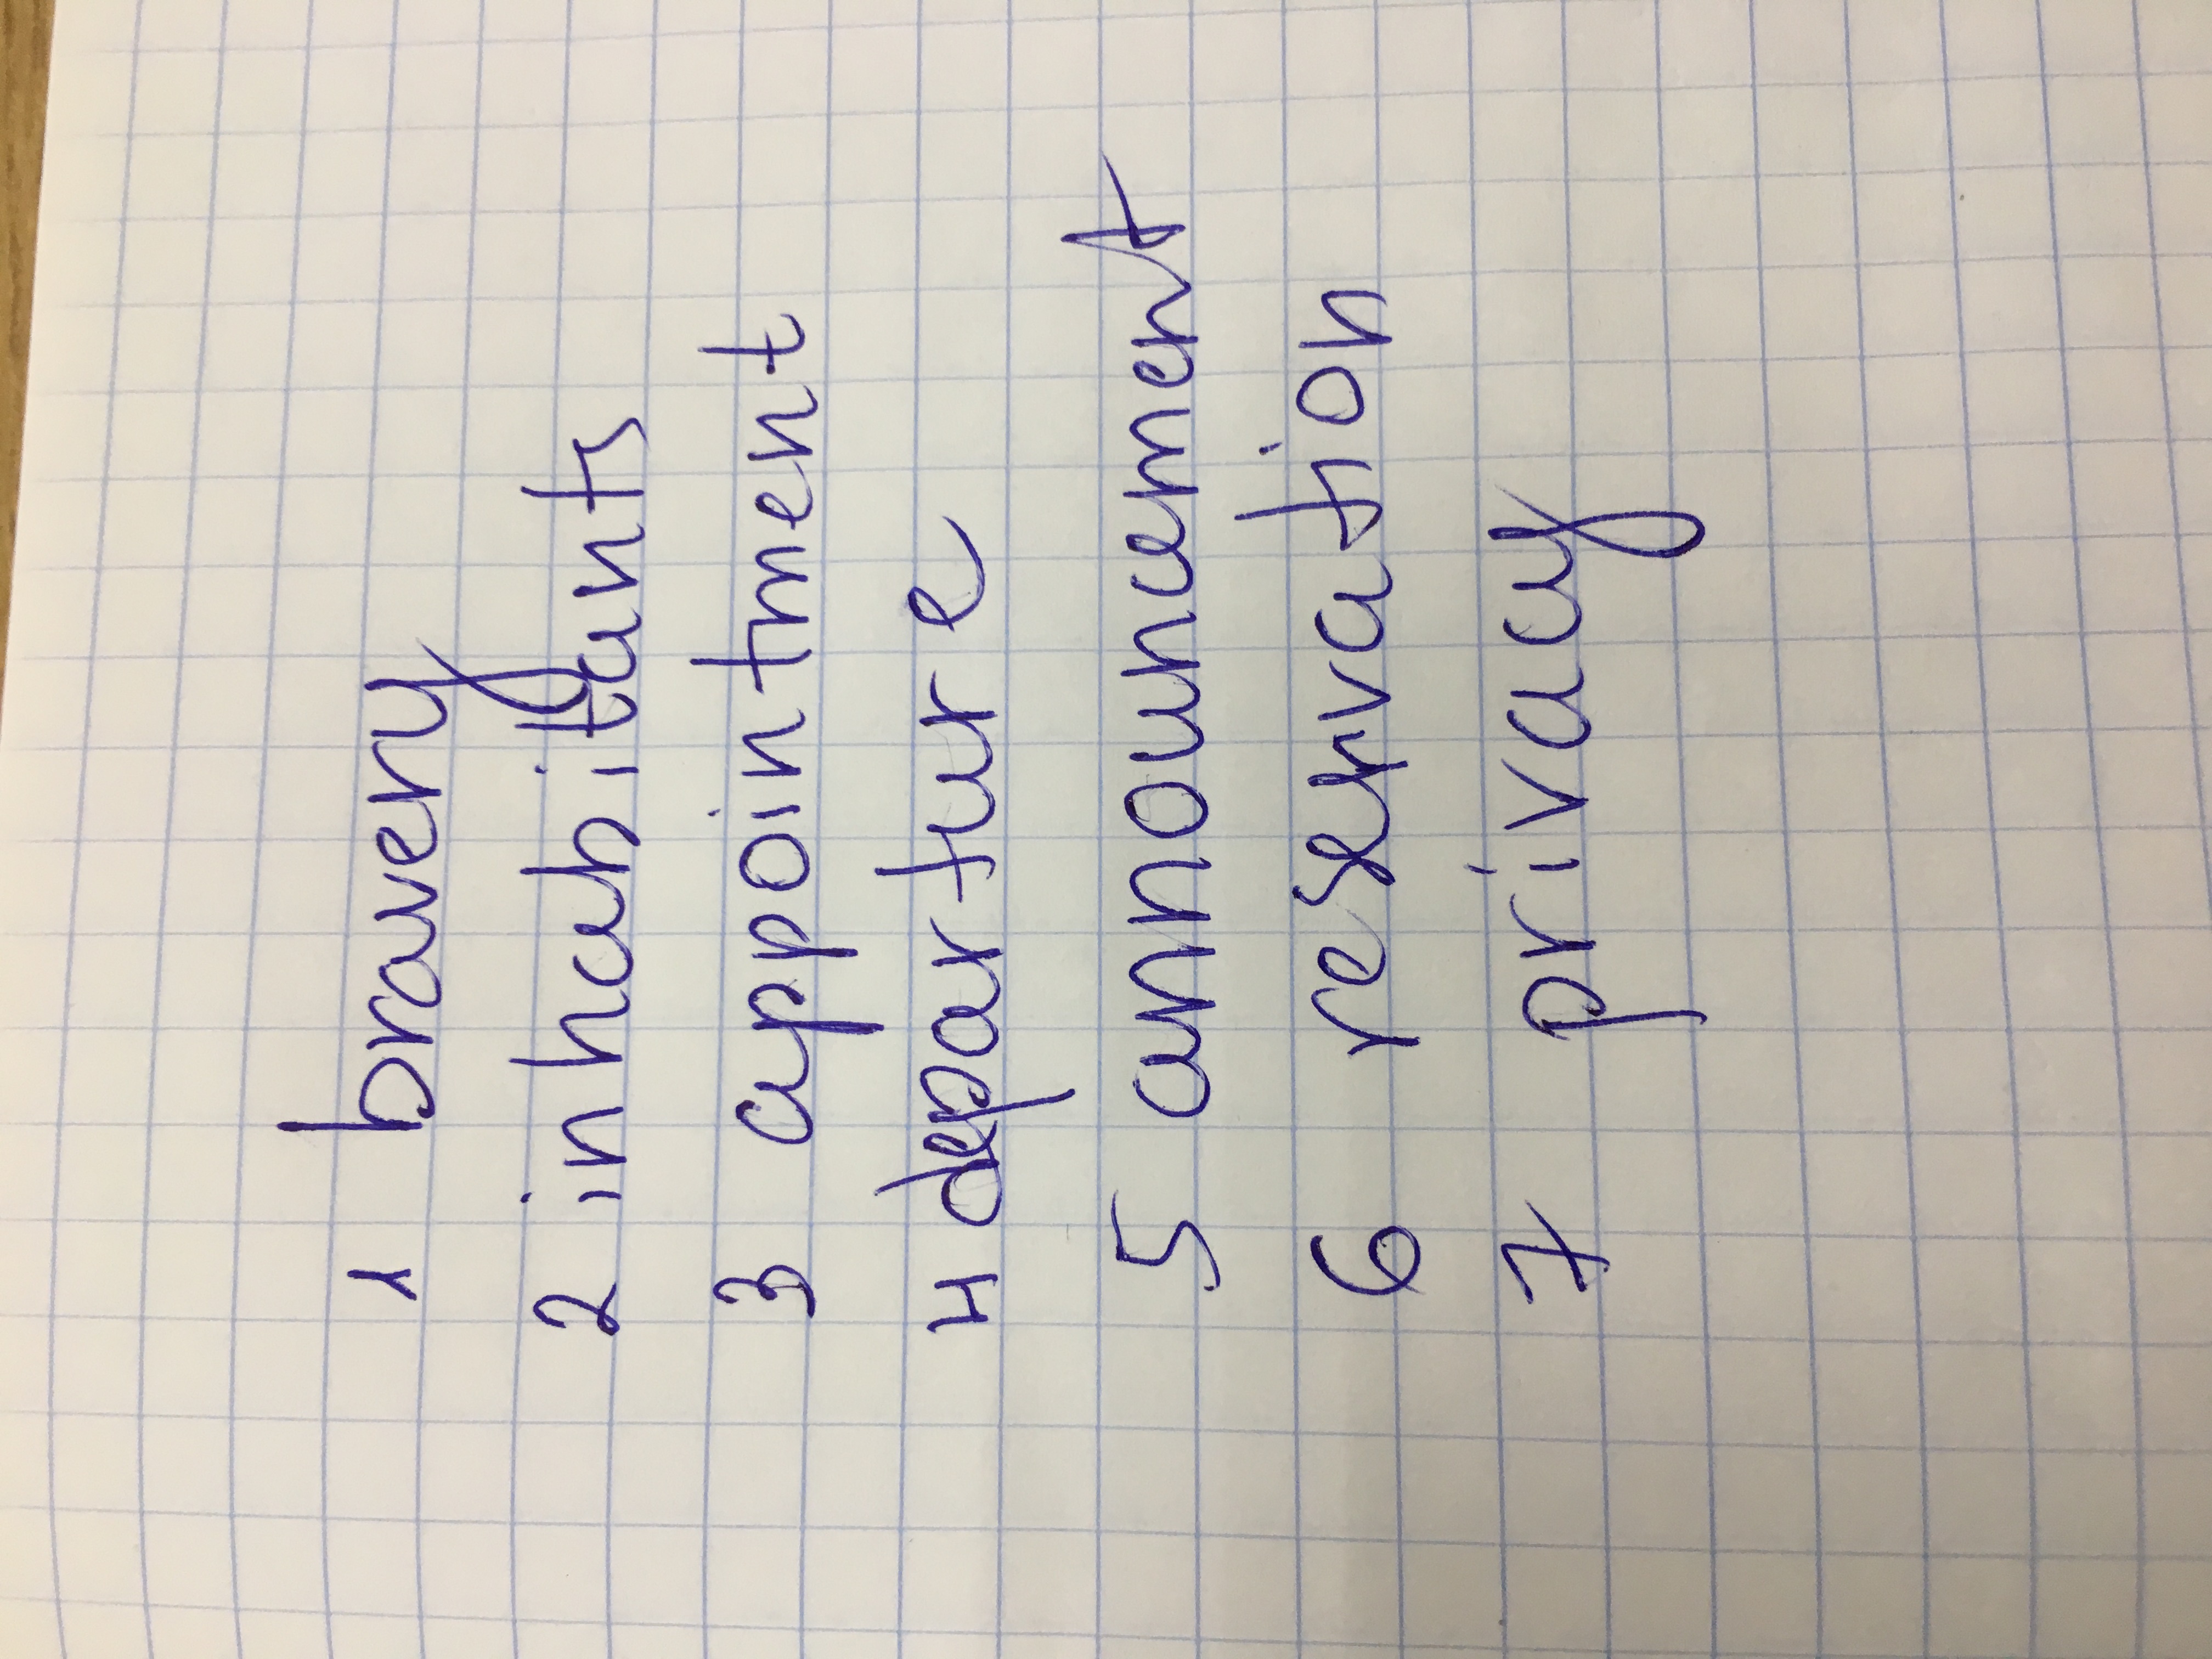 1 bravery
2 inhabitants
3 appointment
4 departure
5 announcement
6 reservation
7 privacy